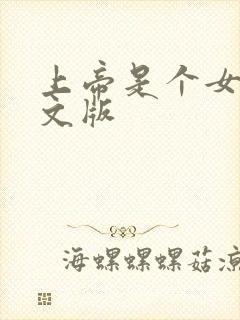 上帝是个女
文版
海螺螺螺菇凉